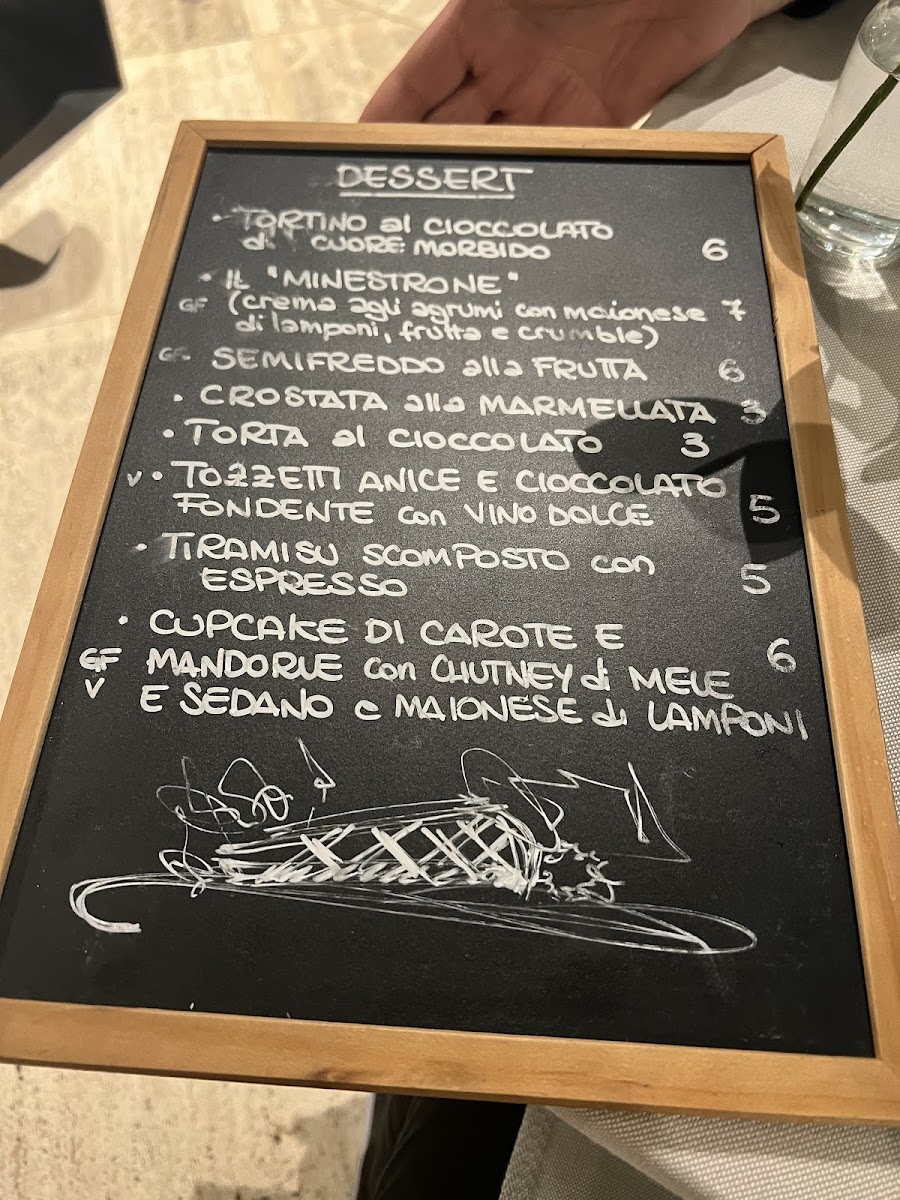 DESSERT
• TORTINO al CIOCCOLATO
di CUORE MORBIDO 6
• IL "MINESTRONE"
GF (crema agli agrumi con maionese 7
di lamponi, frutta e crumble)
GF SEMIFREDDO alla FRUTTA 6
• CROSTATA alla MARMELLATA 3
• TORTA al CIOCCOLATO 3
V • TOZZETTI ANICE E CIOCCOLATO
FONDENTE con VINO DOLCE 5
• TIRAMISU SCOMPOSTO con
ESPRESSO 5
• CUPCAKE DI CAROTE E 6
GF MANDORLE con CHUTNEY di MELE
V E SEDANO e MAIONESE di LAMPONI